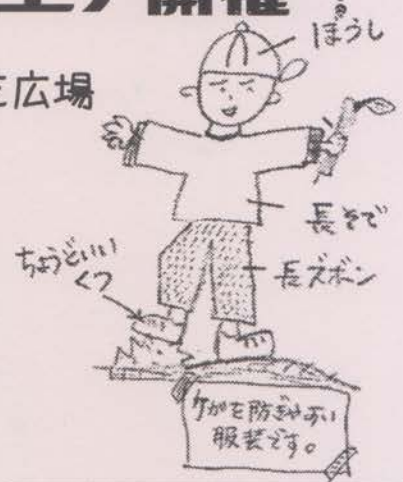 開催
広場
ぼうし
長そで
長ズボン
ちょうどいい
くつ
ケガを防ぎやすい
服装です。